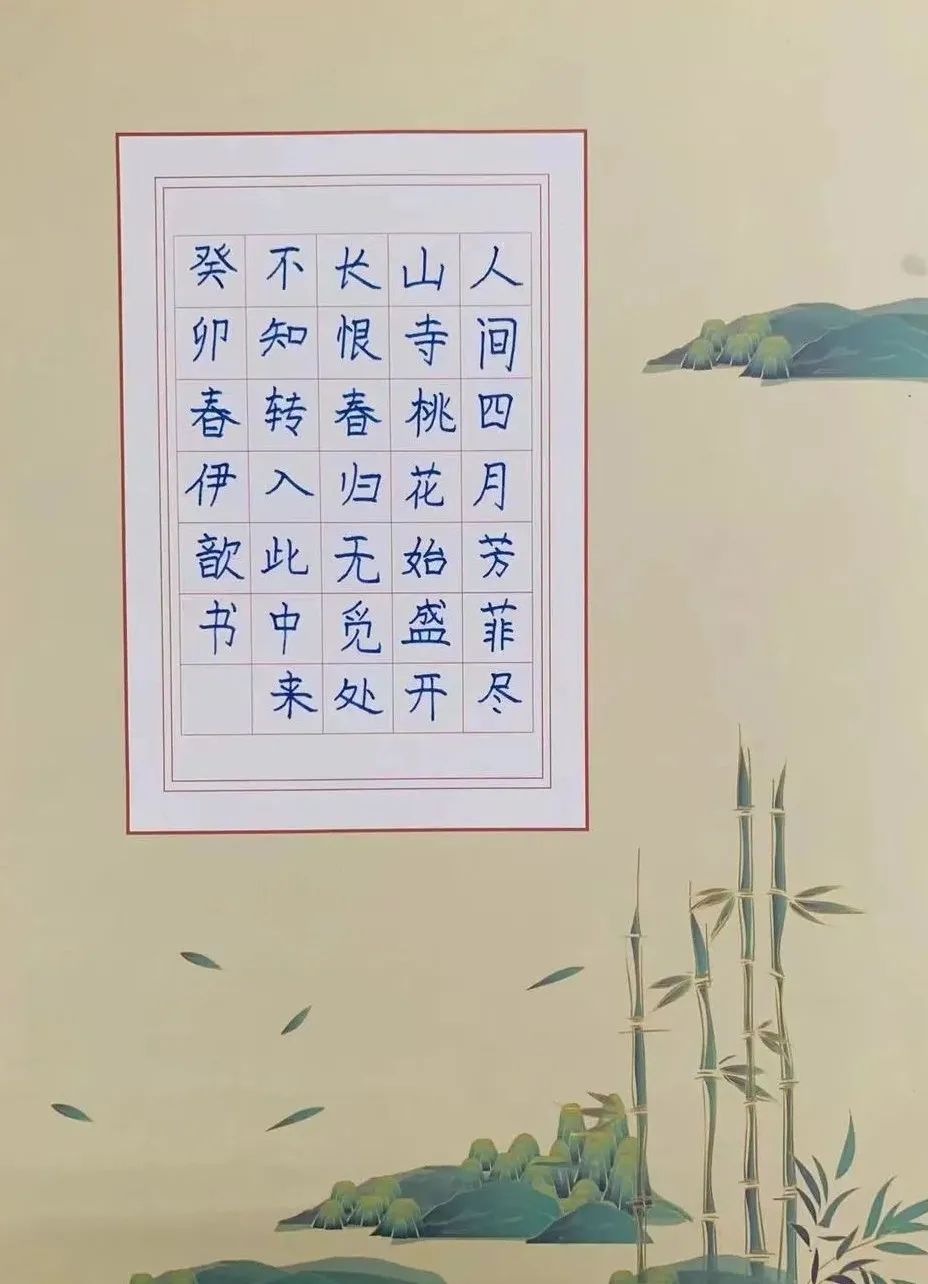 人间四月芳菲尽
山寺桃花始盛开
长恨春归无觅处
不知转入此中来
癸卯春伊歆书